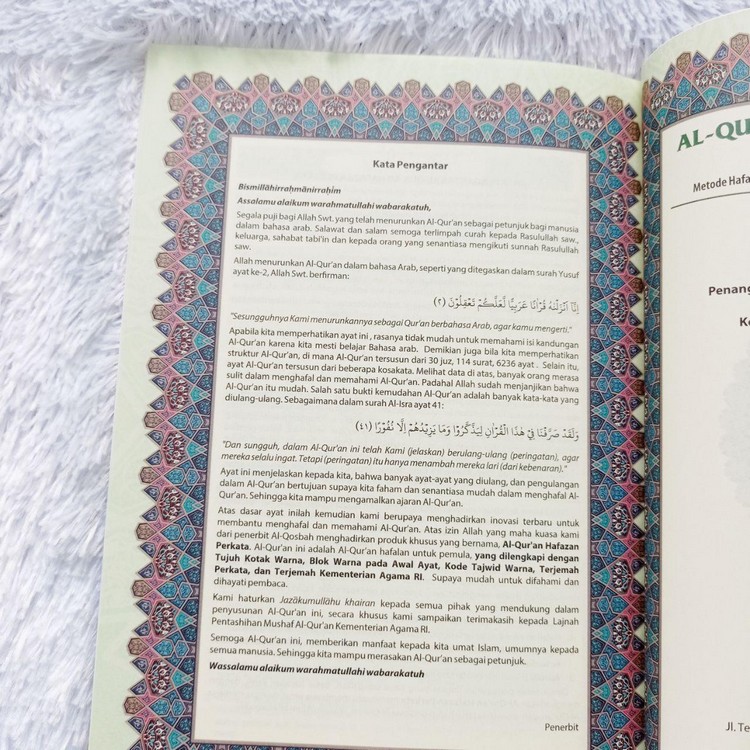 Kata Pengantar
Bismillāhirraḥmānirraḥim
Assalamu alaikum warahmatullahi wabarakatuh,
Segala puji bagi Allah Swt. yang telah menurunkan Al-Qur'an sebagai petunjuk bagi manusia
dalam bahasa arab. Salawat dan salam semoga terlimpah curah kepada Rasulullah saw.,
keluarga, sahabat tabi'in dan kepada orang yang senantiasa mengikuti sunnah Rasulullah
saw.
Allah menurunkan Al-Qur'an dalam bahasa Arab, seperti yang ditegaskan dalam surah Yusuf
ayat ke-2, Allah Swt. berfirman:
اِنَّآ اَنْزَلْنٰهُ قُرْاٰنًا عَرَبِيًّا لَّعَلَّكُمْ تَعْقِلُوْنَ (٢)
"Sesungguhnya Kami menurunkannya sebagai Qur'an berbahasa Arab, agar kamu mengerti."
Apabila kita memperhatikan ayat ini , rasanya tidak mudah untuk memahami isi kandungan
Al-Qur'an karena kita mesti belajar Bahasa arab. Demikian juga bila kita memperhatikan
struktur Al-Qur'an, di mana Al-Qur'an tersusun dari 30 juz, 114 surat, 6236 ayat . Selain itu,
ayat Al-Qur'an tersusun dari beberapa kosakata. Melihat data di atas, banyak orang merasa
sulit dalam menghafal dan memahami Al-Qur'an. Padahal Allah sudah menjanjikan bahwa
Al-Qur'an itu mudah. Salah satu bukti kemudahan Al-Qur'an adalah banyak kata-kata yang
diulang-ulang. Sebagaimana dalam surah Al-Isra ayat 41:
وَلَقَدْ صَرَّفْنَا فِيْ هٰذَا الْقُرْاٰنِ لِيَذَّكَّرُوْاۗ وَمَا يَزِيْدُهُمْ اِلَّا نُفُوْرًا (٤١)
"Dan sungguh, dalam Al-Qur'an ini telah Kami (jelaskan) berulang-ulang (peringatan), agar
mereka selalu ingat. Tetapi (peringatan) itu hanya menambah mereka lari (dari kebenaran)."
Ayat ini menjelaskan kepada kita, bahwa banyak ayat-ayat yang diulang, dan pengulangan
dalam Al-Qur'an bertujuan supaya kita faham dan senantiasa mudah dalam menghafal Al-
Qur'an. Sehingga kita mampu mengamalkan ajaran Al-Qur'an.
Atas dasar ayat inilah kemudian kami berupaya menghadirkan inovasi terbaru untuk
membantu menghafal dan memahami Al-Qur'an. Atas izin Allah yang maha kuasa kami
dari penerbit Al-Qosbah menghadirkan produk khusus yang bernama, Al-Qur'an Hafazan
Perkata. Al-Qur'an ini adalah Al-Qur'an hafalan untuk pemula, yang dilengkapi dengan
Tujuh Kotak Warna, Blok Warna pada Awal Ayat, Kode Tajwid Warna, Terjemah
Perkata, dan Terjemah Kementerian Agama RI. Supaya mudah untuk difahami dan
dihayati pembaca.
Kami haturkan Jazākumullāhu khairan kepada semua pihak yang mendukung dalam
penyusunan Al-Qur'an ini, secara khusus kami sampaikan terimakasih kepada Lajnah
Pentashihan Mushaf Al-Qur'an Kementerian Agama RI.
Semoga Al-Qur'an ini, memberikan manfaat kepada kita umat Islam, umumnya kepada
semua manusia. Sehingga kita mampu merasakan Al-Qur'an sebagai petunjuk.
Wassalamu alaikum warahmatullahi wabarakatuh
Penerbit
AL-QU
Metode Hafa
Penang
Ke
Jl. Te